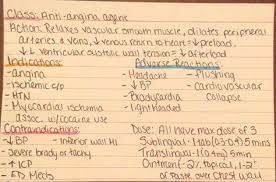 Class: Anti-angina agent
Action: Relaxes vascular smooth muscle, dilates peripheral
arteries & veins, ↓ venous return to heart = ↓ preload,
↓↓ ventricular systolic wall tension = ↓ afterload
Indications:
-angina
-ischemic c/p
-HTN
-Myocardial ischemia
assoc. w/cocaine use
Adverse Reactions:
-Headache
-↓BP
-Bradycardia
-lightheaded
-Flushing
-cardiovascular
collapse
Contraindications:
-↓BP
-Severe brady/tachy
-↑ICP
-ED Meds
-Interior wall MI
Dose: All have max dose of 3
Sublingual-1tab(0.3-0.4) 5mins
Translingual-1(0.4m) 5min
Ointment-2% topical, 1-2"
of paste over chest wall